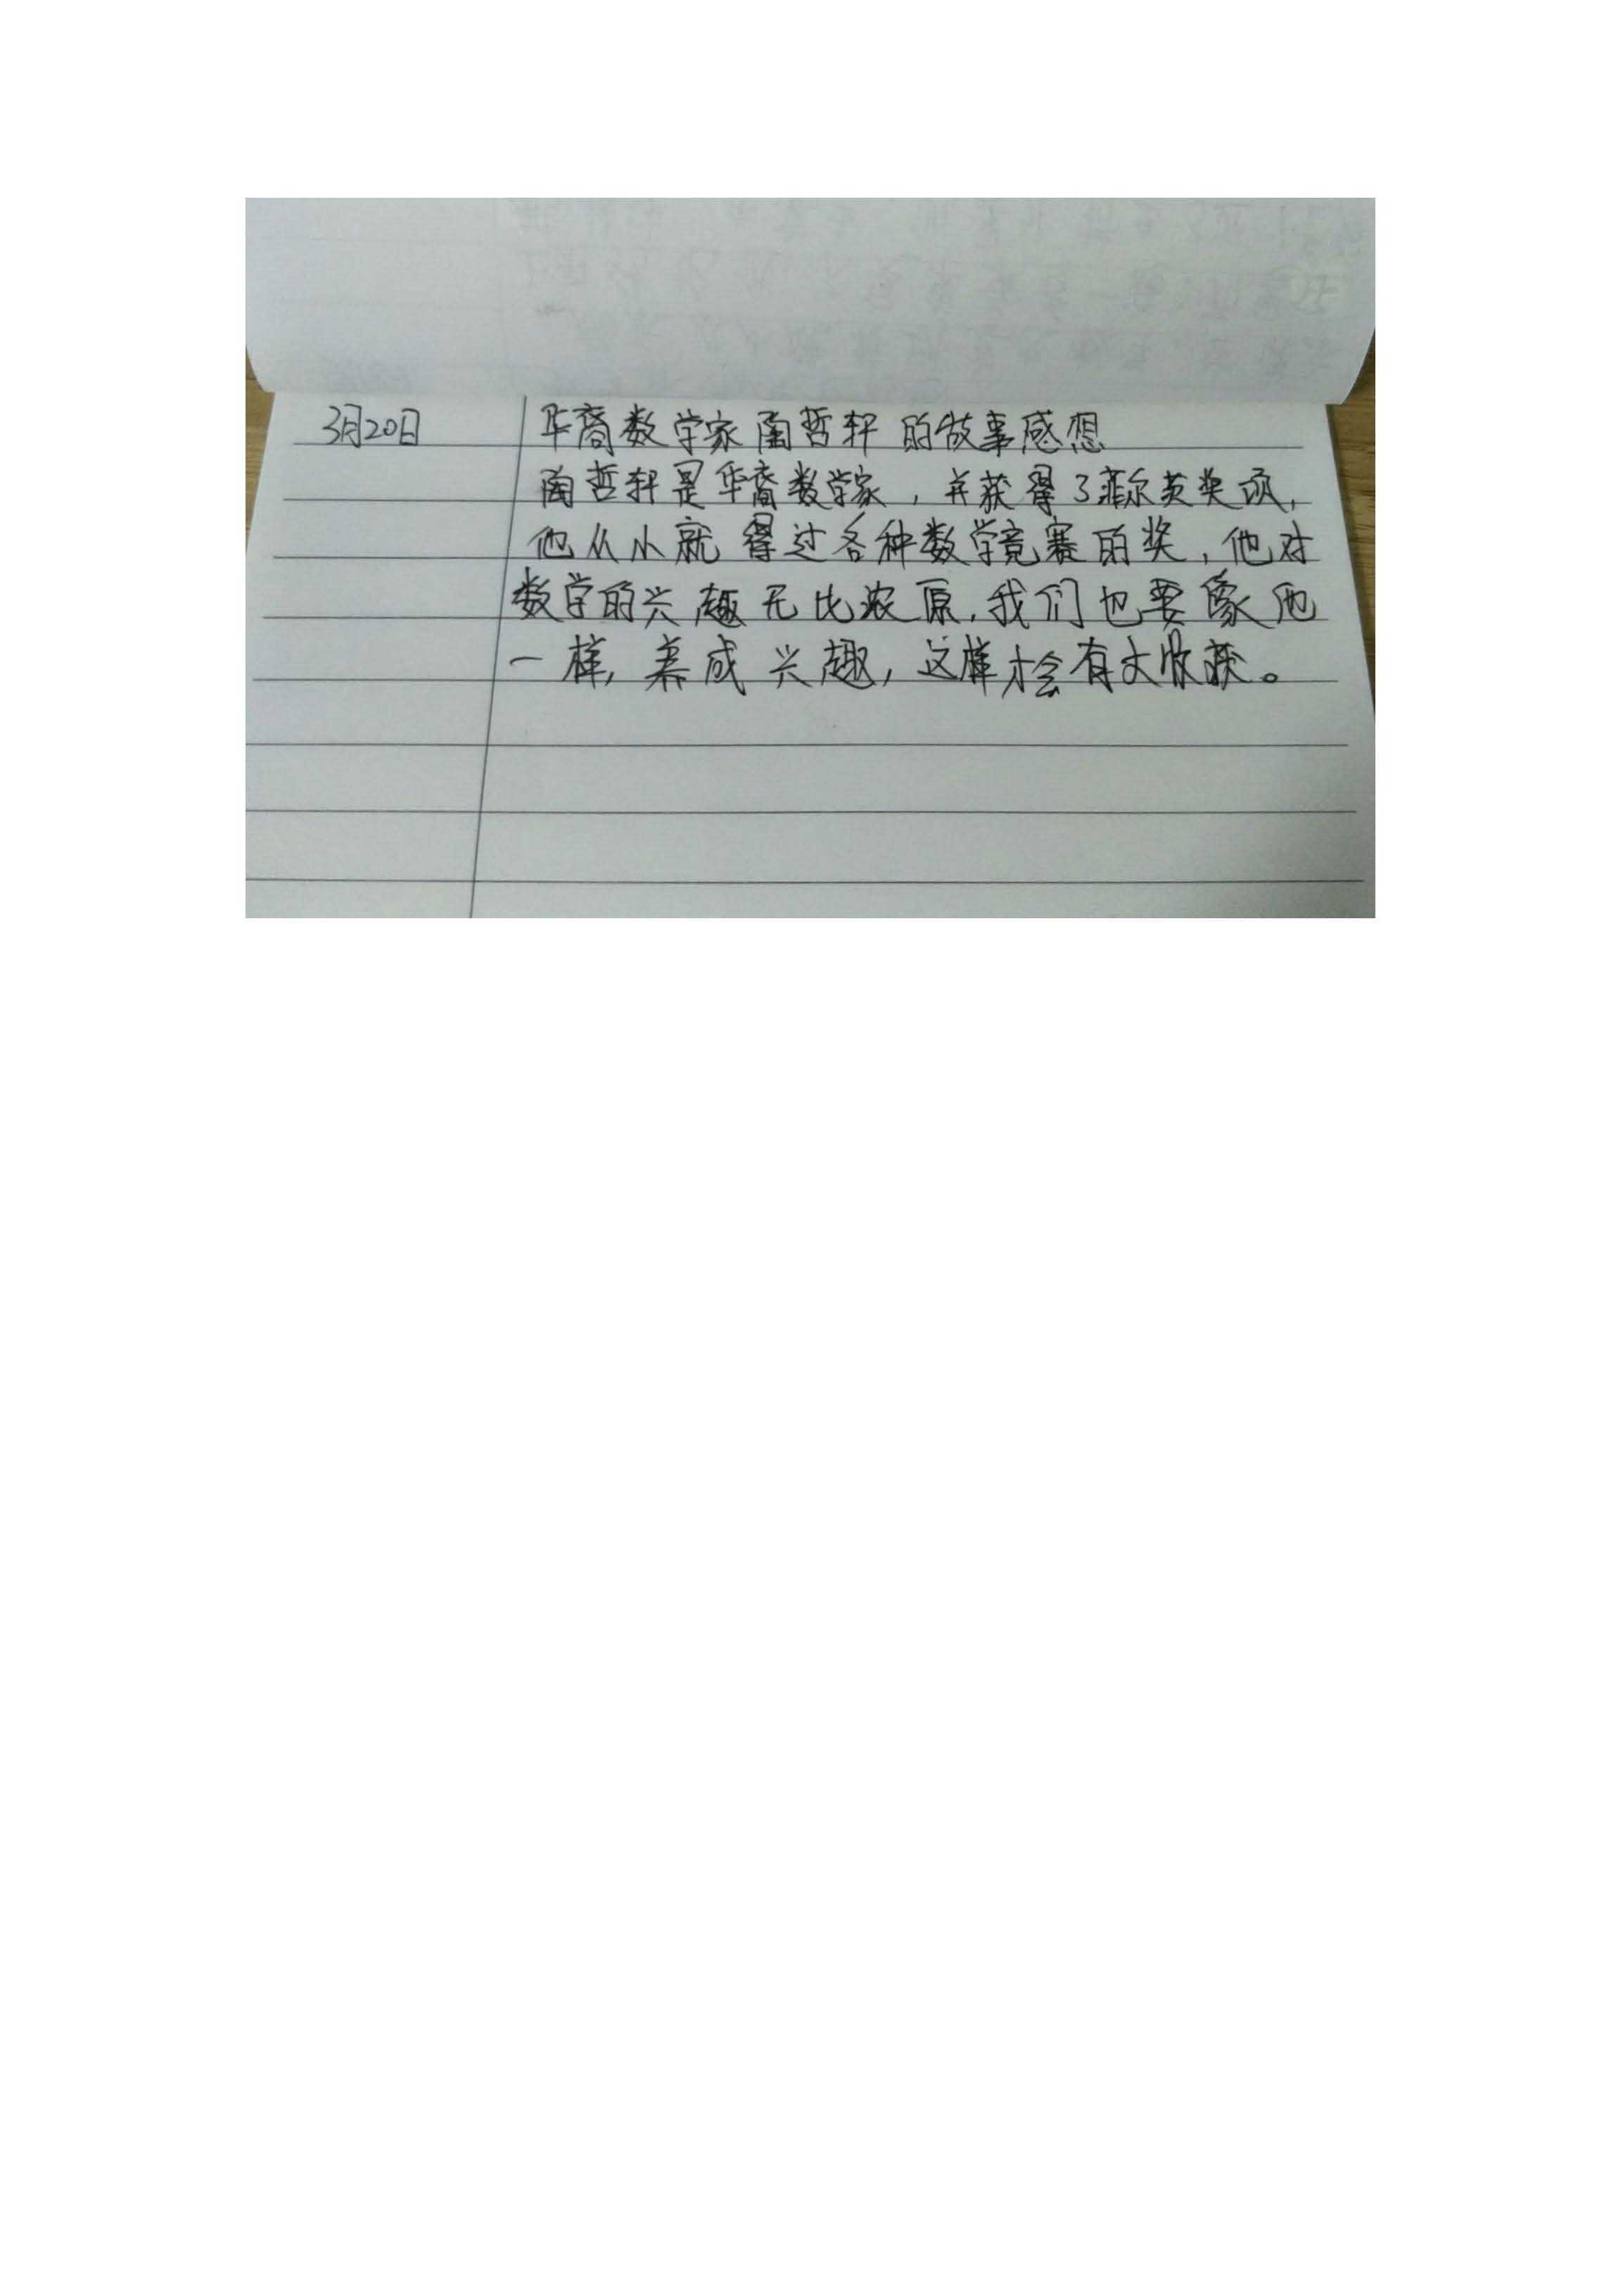 3月20日 华裔数学家陶哲轩的故事感想
陶哲轩是华裔数学家，并获得了菲尔英奖项，
他从小就得过各种数学竞赛的奖，他对
数学的兴趣无比浓厚，我们也要像他
一样，养成兴趣，这样才会有大收获。